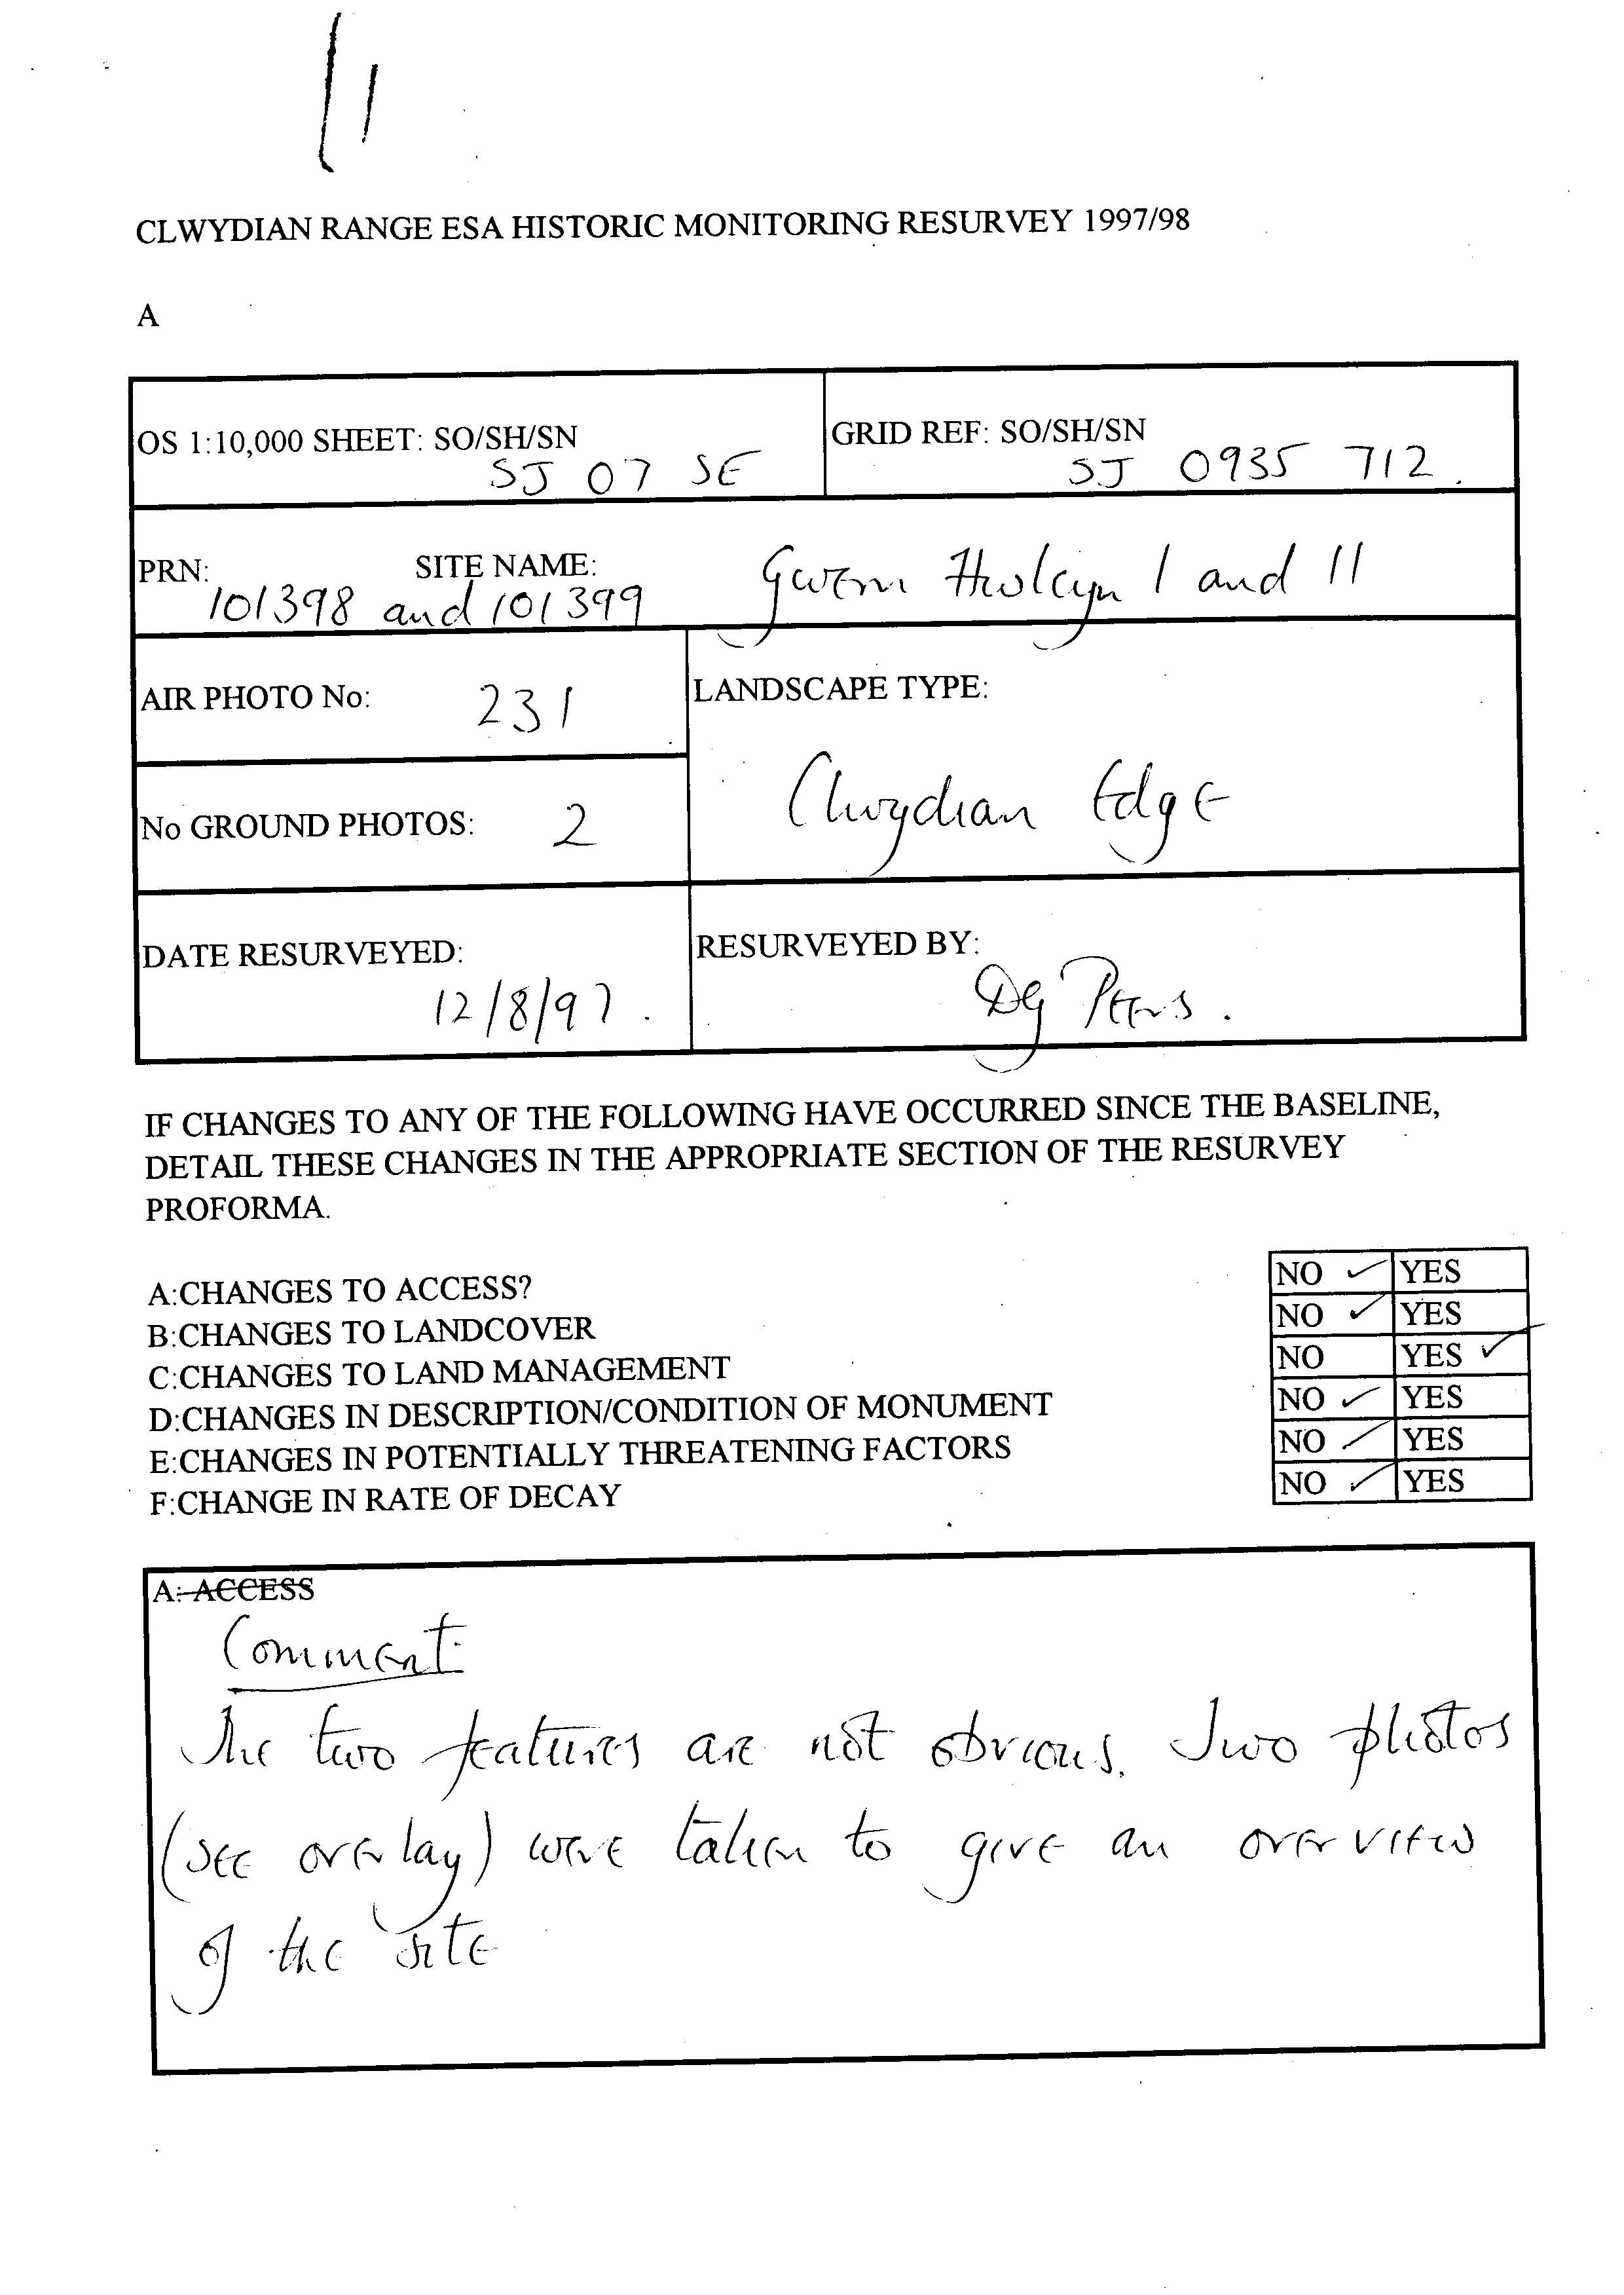 11
CLWYDIAN RANGE ESA HISTORIC MONITORING RESURVEY 1997/98
A
OS 1:10,000 SHEET: SO/SH/SN
SJ 07 SE
GRID REF: SO/SH/SN
SJ 0935 712.
PRN:
101398 and 101399
SITE NAME:
Gwern Hwlcyn I and II
AIR PHOTO No: 231
LANDSCAPE TYPE:
Clwydian Edge
No GROUND PHOTOS: 2
DATE RESURVEYED:
12/8/97.
RESURVEYED BY:
DG Peers.
IF CHANGES TO ANY OF THE FOLLOWING HAVE OCCURRED SINCE THE BASELINE,
DETAIL THESE CHANGES IN THE APPROPRIATE SECTION OF THE RESURVEY
PROFORMA.
A:CHANGES TO ACCESS? NO ✓ YES
B:CHANGES TO LANDCOVER NO ✓ YES
C:CHANGES TO LAND MANAGEMENT NO YES ✓
D:CHANGES IN DESCRIPTION/CONDITION OF MONUMENT NO ✓ YES
E:CHANGES IN POTENTIALLY THREATENING FACTORS NO ✓ YES
F:CHANGE IN RATE OF DECAY NO ✓ YES
A: ACCESS
Comment
The two features are not obvious. Two photos
(see overlay) were taken to give an overview
of the site